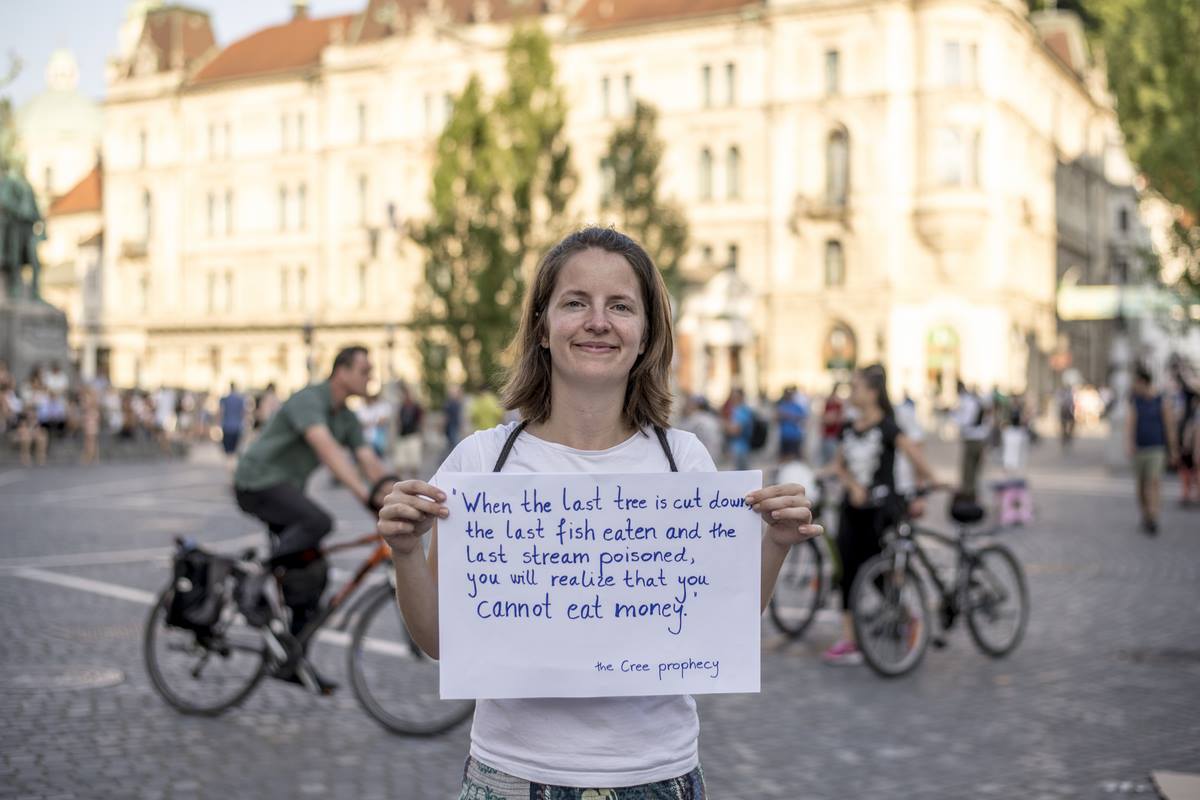 'When the last tree is cut down,
the last fish eaten and the
last stream poisoned,
you will realize that you
cannot eat money.'
the Cree prophecy